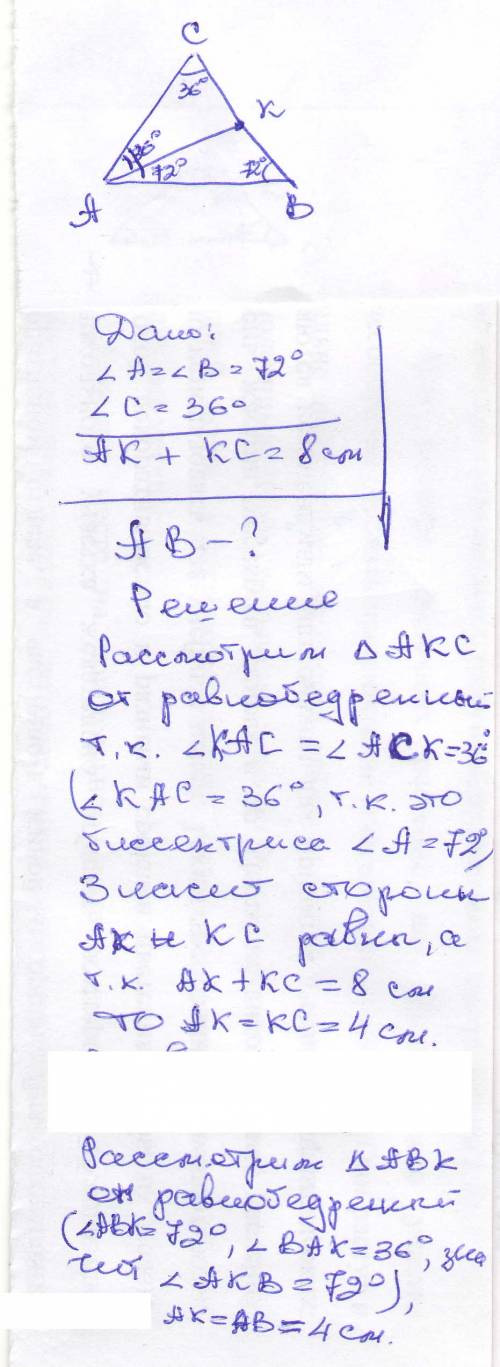 C
36°
K
36°
72°
72°
A
B
Дано:
∠A = ∠B = 72°
∠C = 36°
AK + KC = 8 см
AB – ?
Решение
Рассмотрим △ AKC
он равнобедренный
т.к. ∠KAC = ∠ACK = 36°
(∠KAC = 36°, т.к. это
биссектриса ∠A = 72°)
Значит стороны
AK и KC равны, а
т.к. AK + KC = 8 см
то AK = KC = 4 см.
Рассмотрим △ ABK
он равнобедренный
(∠ABK = 72°, ∠BAK = 36°, зна
чит ∠AKB = 72°),
AK = AB = 4 см.